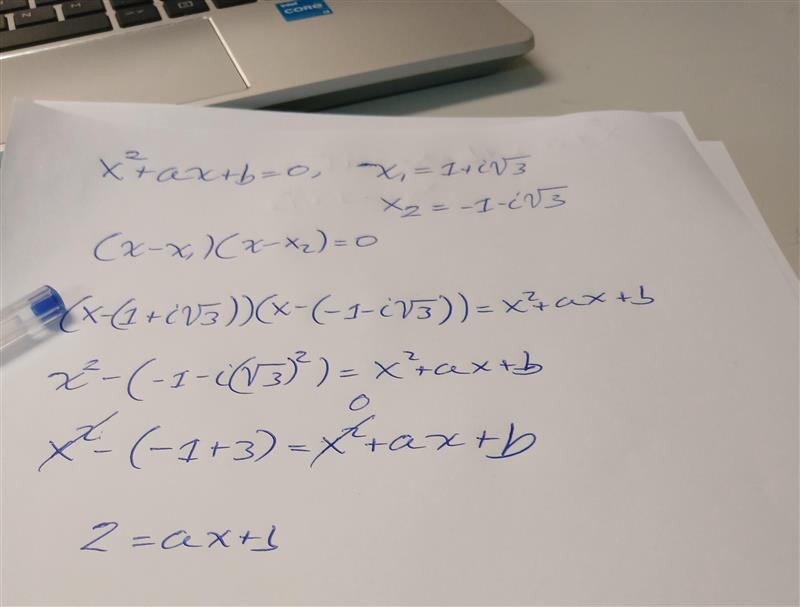 intel
CORE
x²+ax+b=0, x₁=1+i√3
x₂=-1-i√3
(x-x₁)(x-x₂)=0
(x-(1+i√3))(x-(-1-i√3))=x²+ax+b
x²-(-1-i(√3)²)=x²+ax+b
0
x²-(-1+3)=x²+ax+b
2=ax+b